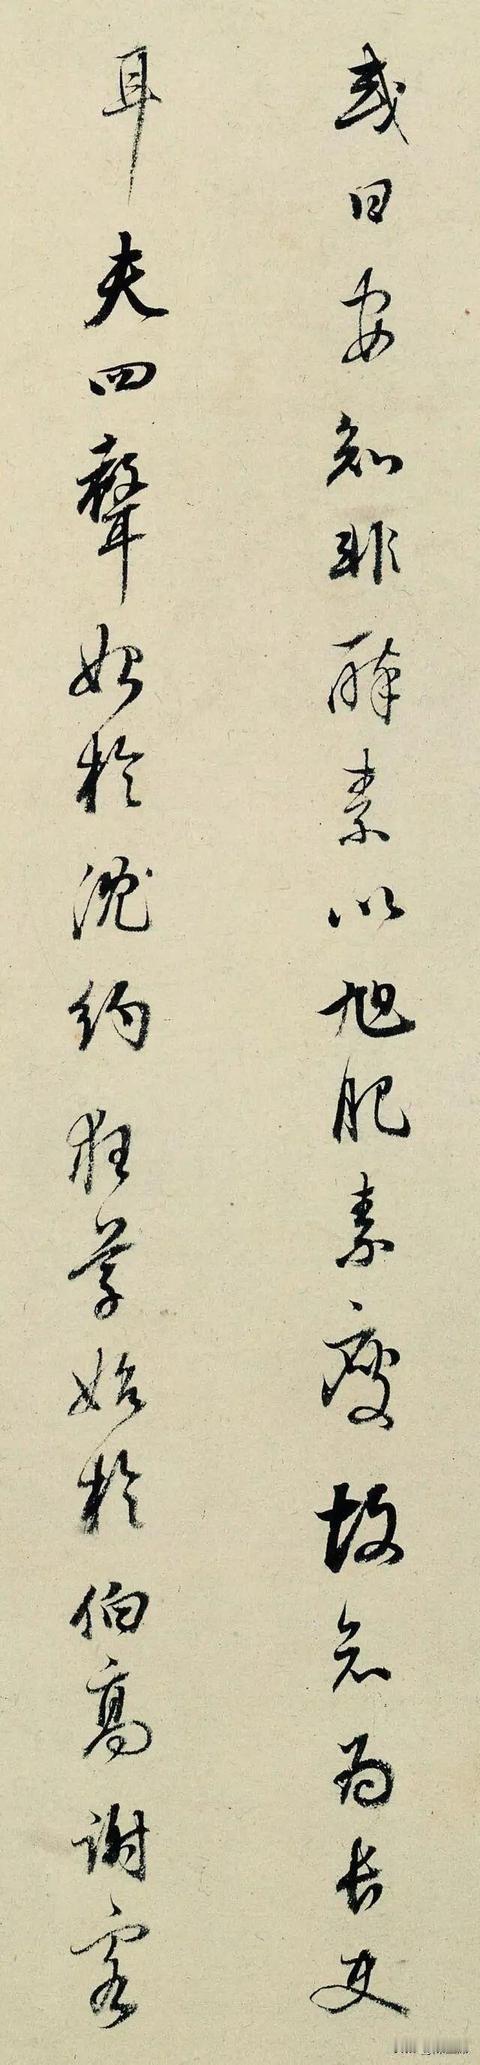 或曰安知非醉素以旭肥素瘦故知为长史
耳夫四聲始於沈約狂草始於伯高謝客